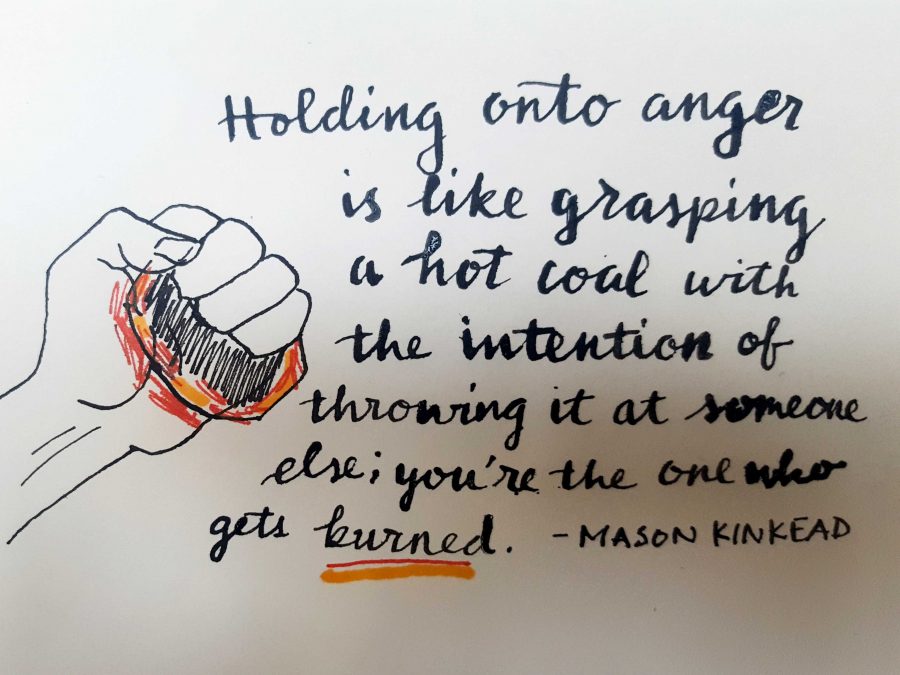 Holding onto anger
is like grasping
a hot coal with
the intention of
throwing it at someone
else; you're the one who
gets burned. - MASON KINKEAD